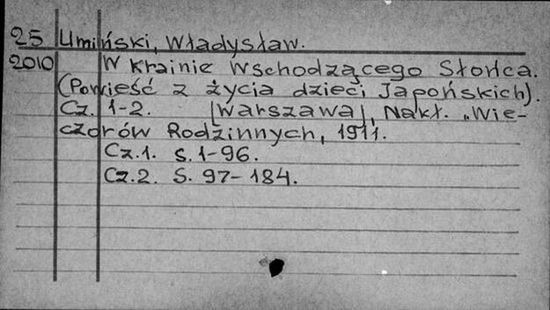 25 Umiński, Władysław.
2010 W Krainie Wschodzącego Słońca.
(Powieść z życia dzieci Japońskich).
Cz. 1-2. [Warszawa], Nakł. „Wie-
czorów Rodzinnych, 1911.
Cz.1. s. 1-96.
Cz.2. s. 97-184.